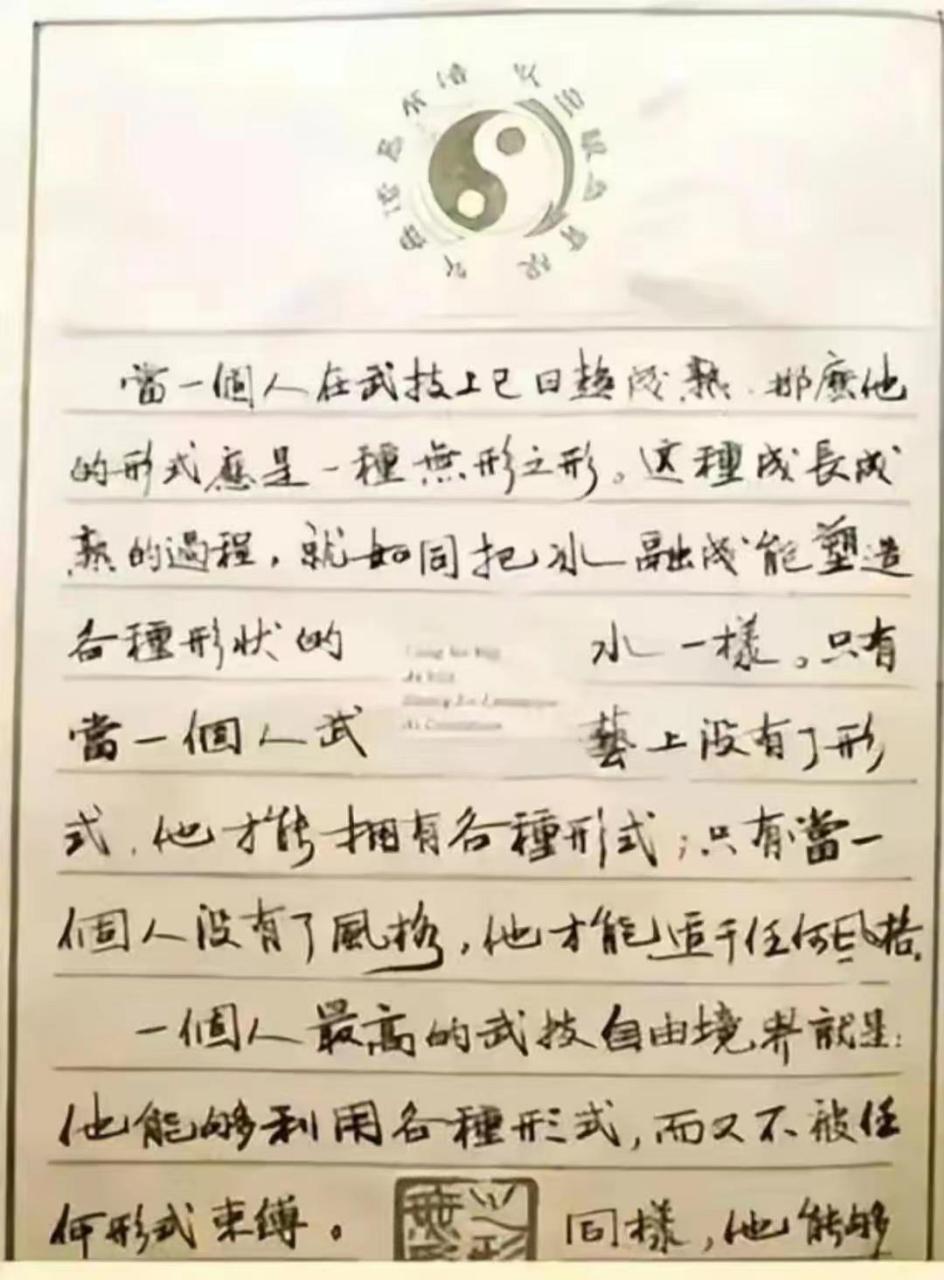 當一個人在武技上已日趨成熟．那麽他
的形式應是一種無形之形。这種成長成
熟的過程，就如同把冰融成能塑造
各種形狀的 水一樣。只有
當一個人武 藝上没有了形
式，他才能拥有各種形式；只有當一
個人没有了風格，他才能适于任何风格。
一個人最高的武技自由境界就是：
他能够利用各種形式，而又不被任
何形式束縛。 同樣，他能够